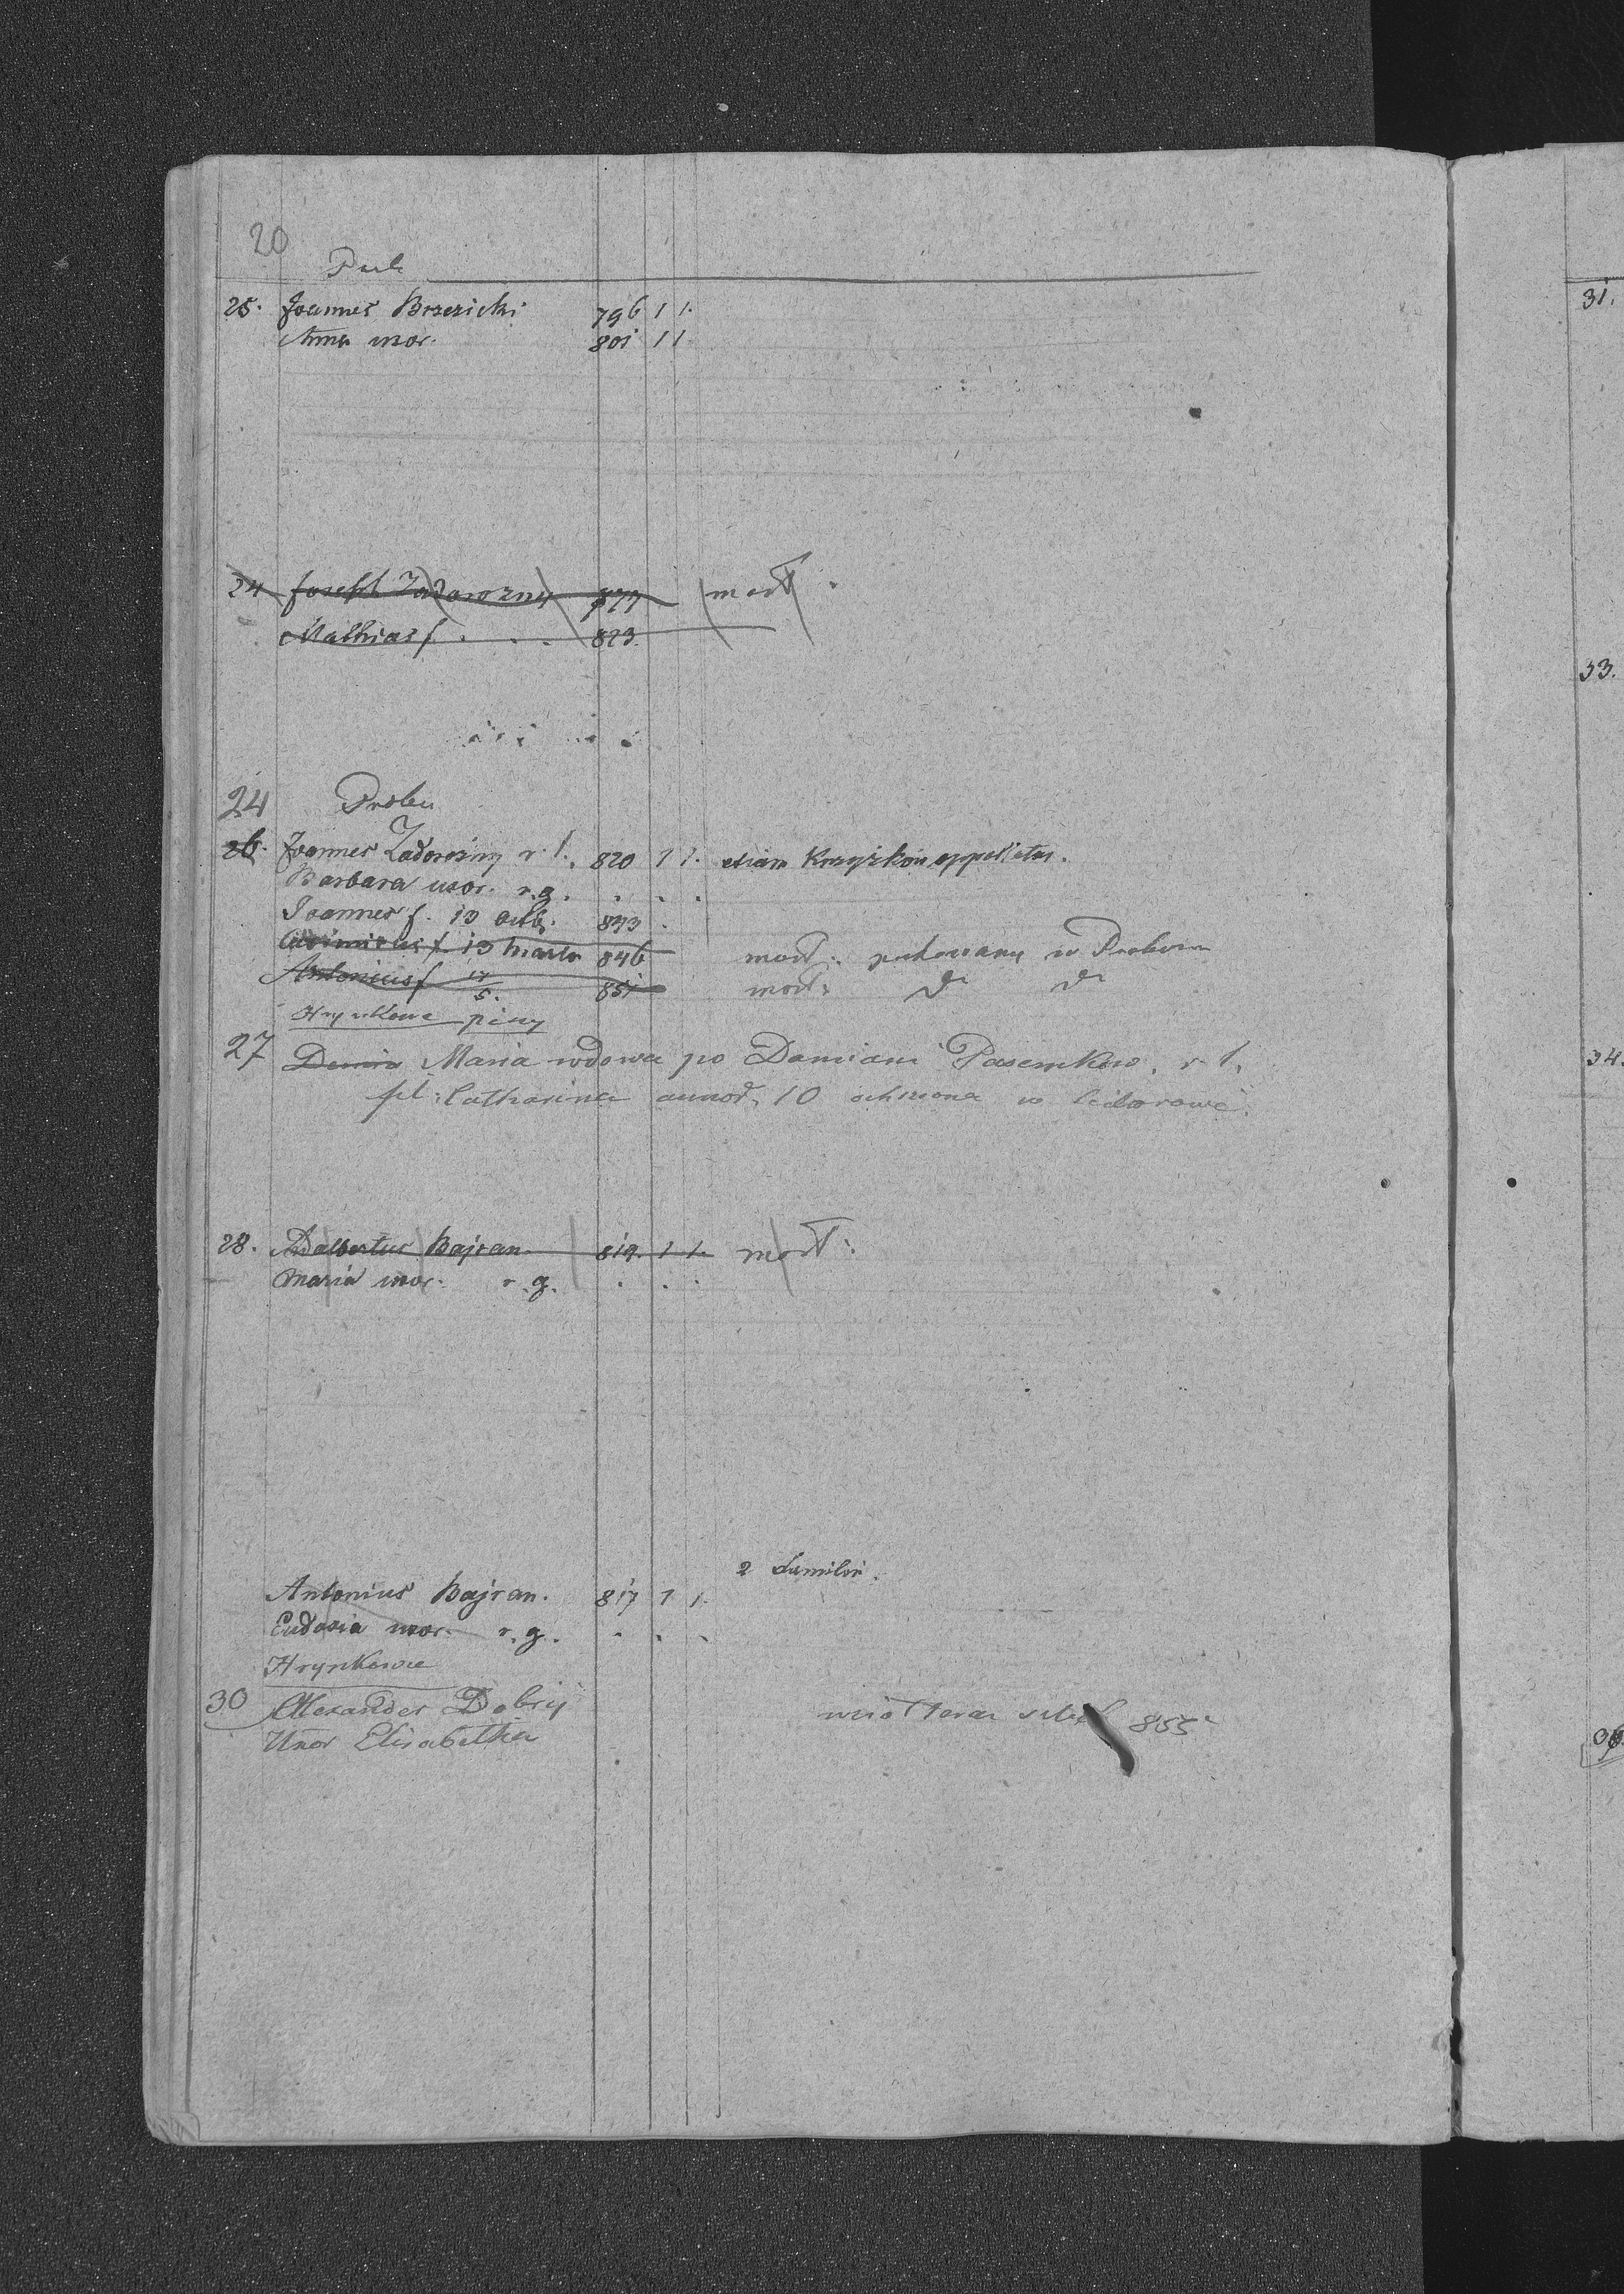 20
25. Joannes Brzezicki 796 1 1.
Anna uxor. 801 1 1
24 Joseph Zadorozny 777 mort.
Mathias f. . . . 823.
24 Probu
26. Joannes Zadorozny r. l. 820 1 1. etiam Krzyżków appellatus.
Barbara uxor. r. g. . . .
Joannes f. 13 octb. 843 .
Casimirus f. 13 Martii 846 mort. pochowany w Probu
Antonius f. 17/5. 851 mort. do do
Hrynkowe
27 Maria wdowa po Damiani Pasemkow. r. l.
fil: Catharina annor. 10 ochrzona w
28. Adalbertus Bajran. 819. 1 1. mort:
Maria uxor. r. g. . . .
2 Familie.
Antonius Bajran. 817 1 1.
Eudoxia uxor. r. g. . . .
Hrynkowe
30 Alexander Dobrij
855
Uxor Elisabetha
31.
33.
34.
36.